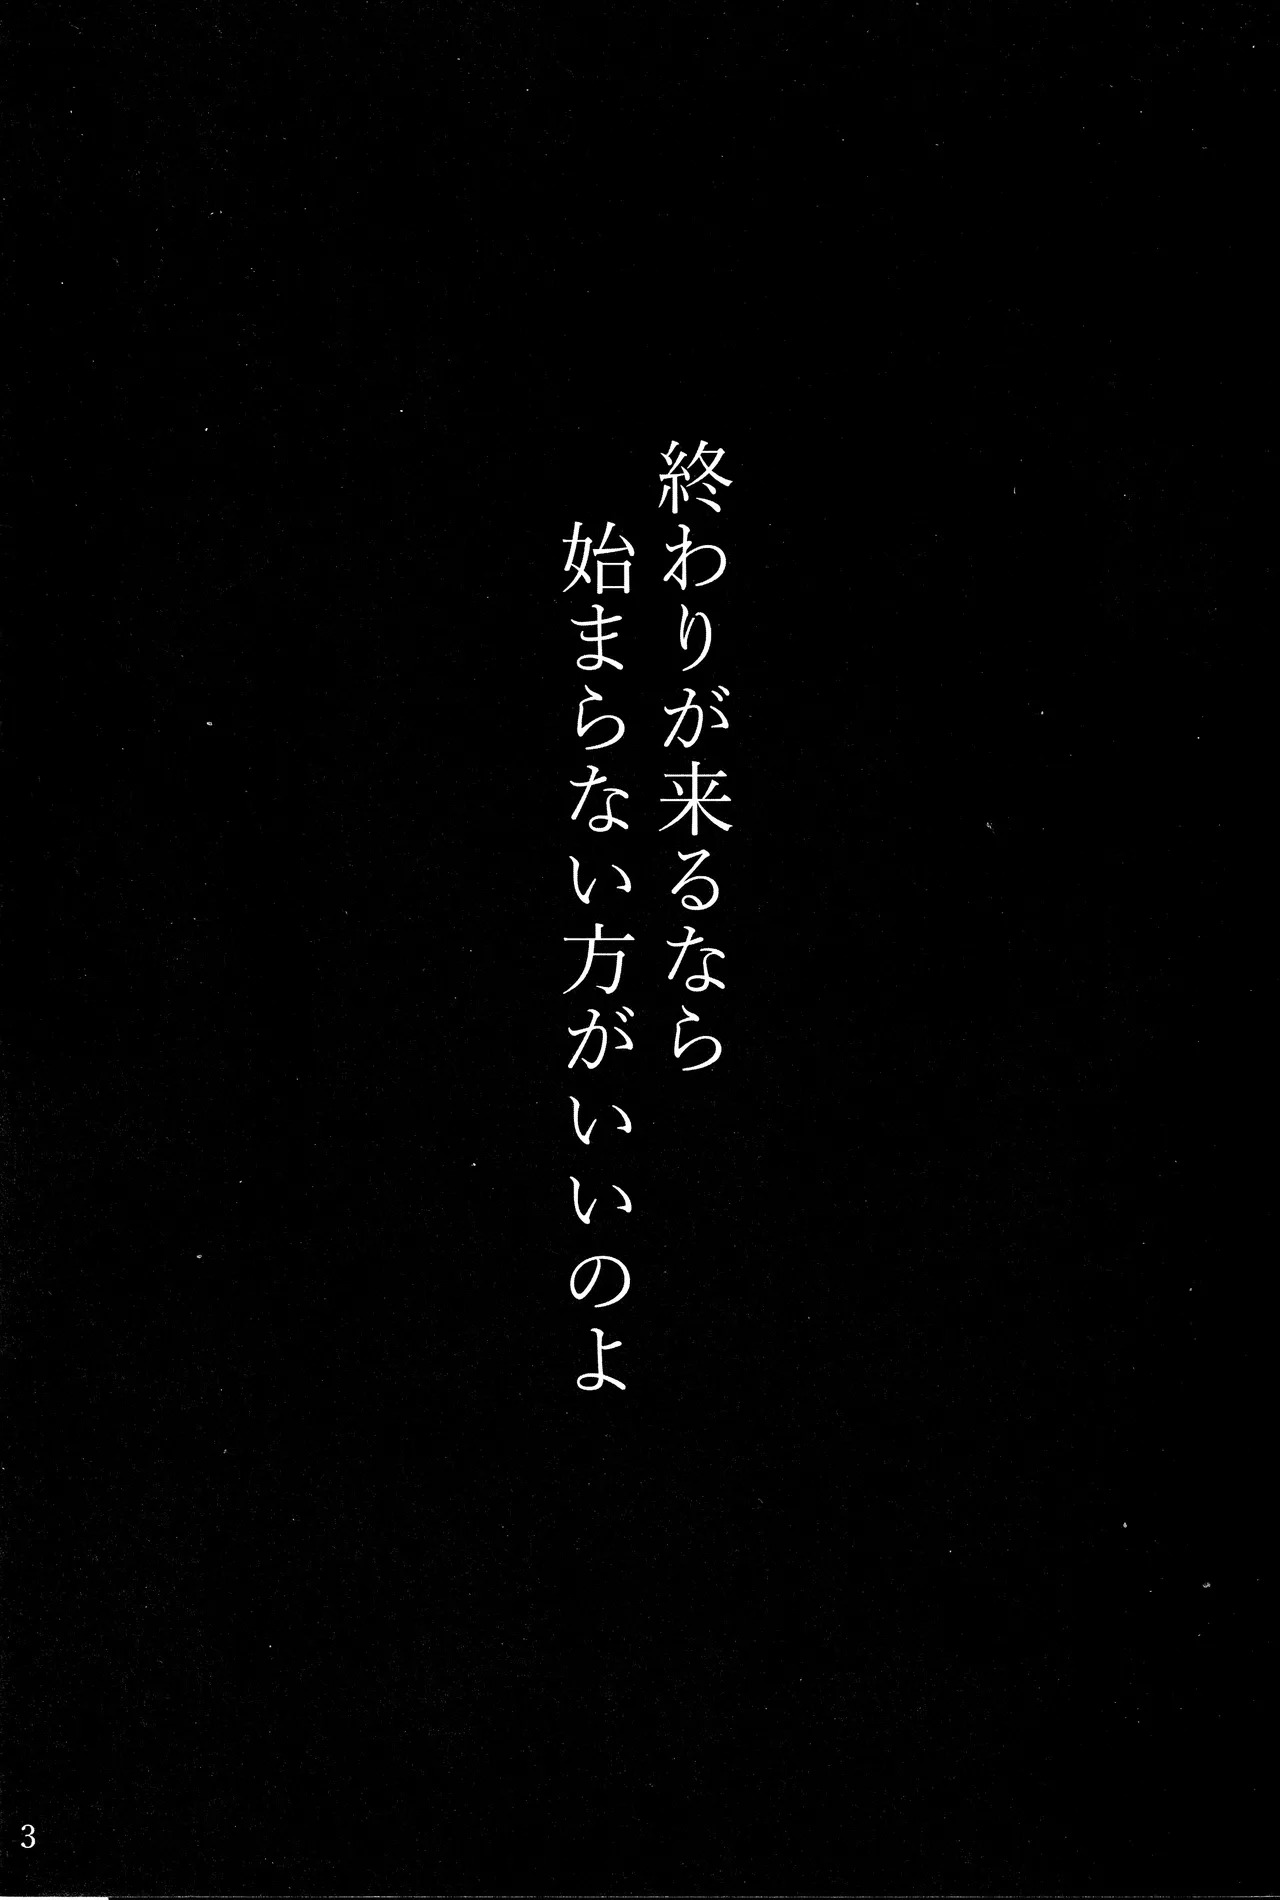 終わりが来るなら
始まらない方がいいのよ
3